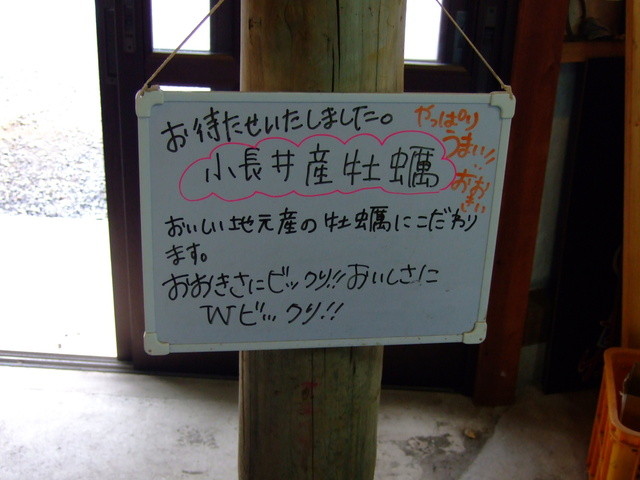 お待たせいたしました。
やっぱり
うまい!!
おおきい
小長井産牡蠣
おいしい地元産の牡蠣にこだわり
ます。
おおきさにビックリ!!おいしさに
Wビックリ!!